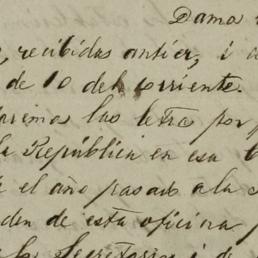 Dama
, recibidas antier, i
de 10 del corriente.
aremos las letras por
la República en esa
el año pasado a la
den de esta oficina
la Secretaria i de